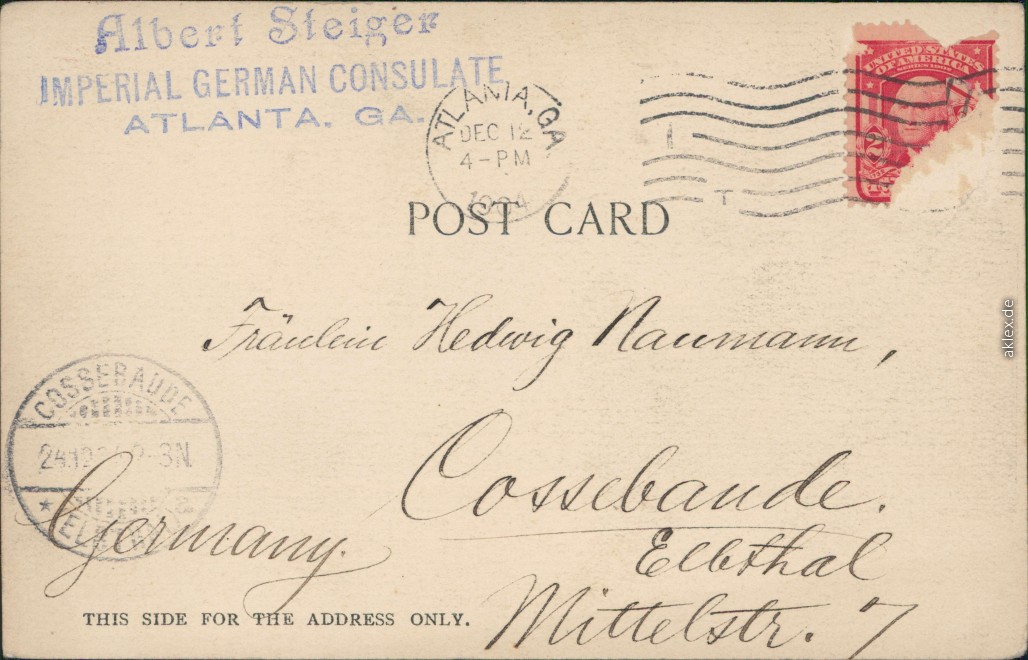 Albert Steiger
IMPERIAL GERMAN CONSULATE
ATLANTA. GA.
ATLANTA, GA.
DEC 12
4-PM
1904
UNITED STATES
OF AMERICA
POST CARD
Fräulein Hedwig Naumann,
Cossebaude.
Elbthal
Mittelstr. 7
Germany.
COSSEBAUDE
THIS SIDE FOR THE ADDRESS ONLY.
aklex.de